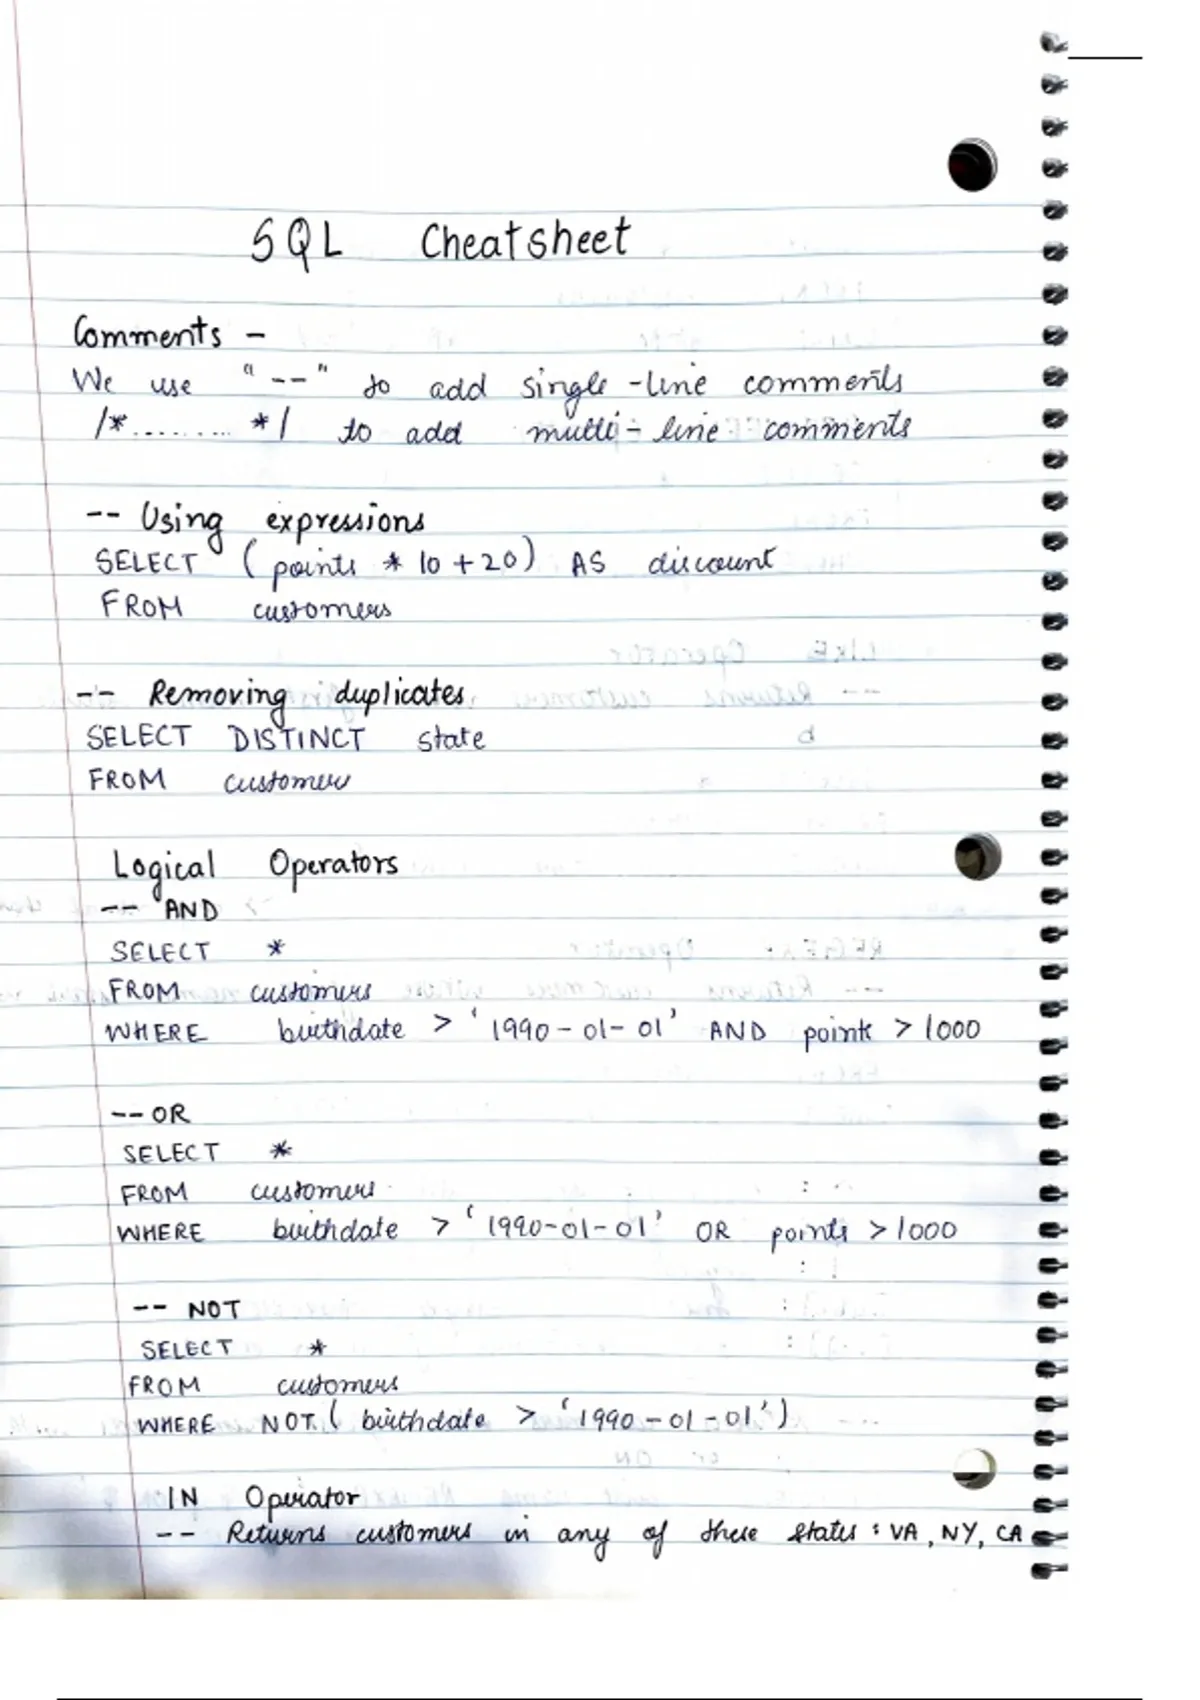 SQL Cheatsheet
Comments -
We use "--" to add single-line comments
/*......... */ to add multi-line comments
-- Using expressions
SELECT (points * 10 + 20) AS discount
FROM customers
-- Removing duplicates
SELECT DISTINCT state
FROM customers
Logical Operators
-- AND
SELECT *
FROM customers
WHERE birthdate > '1990-01-01' AND points > 1000
-- OR
SELECT *
FROM customers
WHERE birthdate > '1990-01-01' OR points > 1000
-- NOT
SELECT *
FROM customers
WHERE NOT (birthdate > '1990-01-01')
IN Operator
-- Returns customers in any of these states : VA, NY, CA